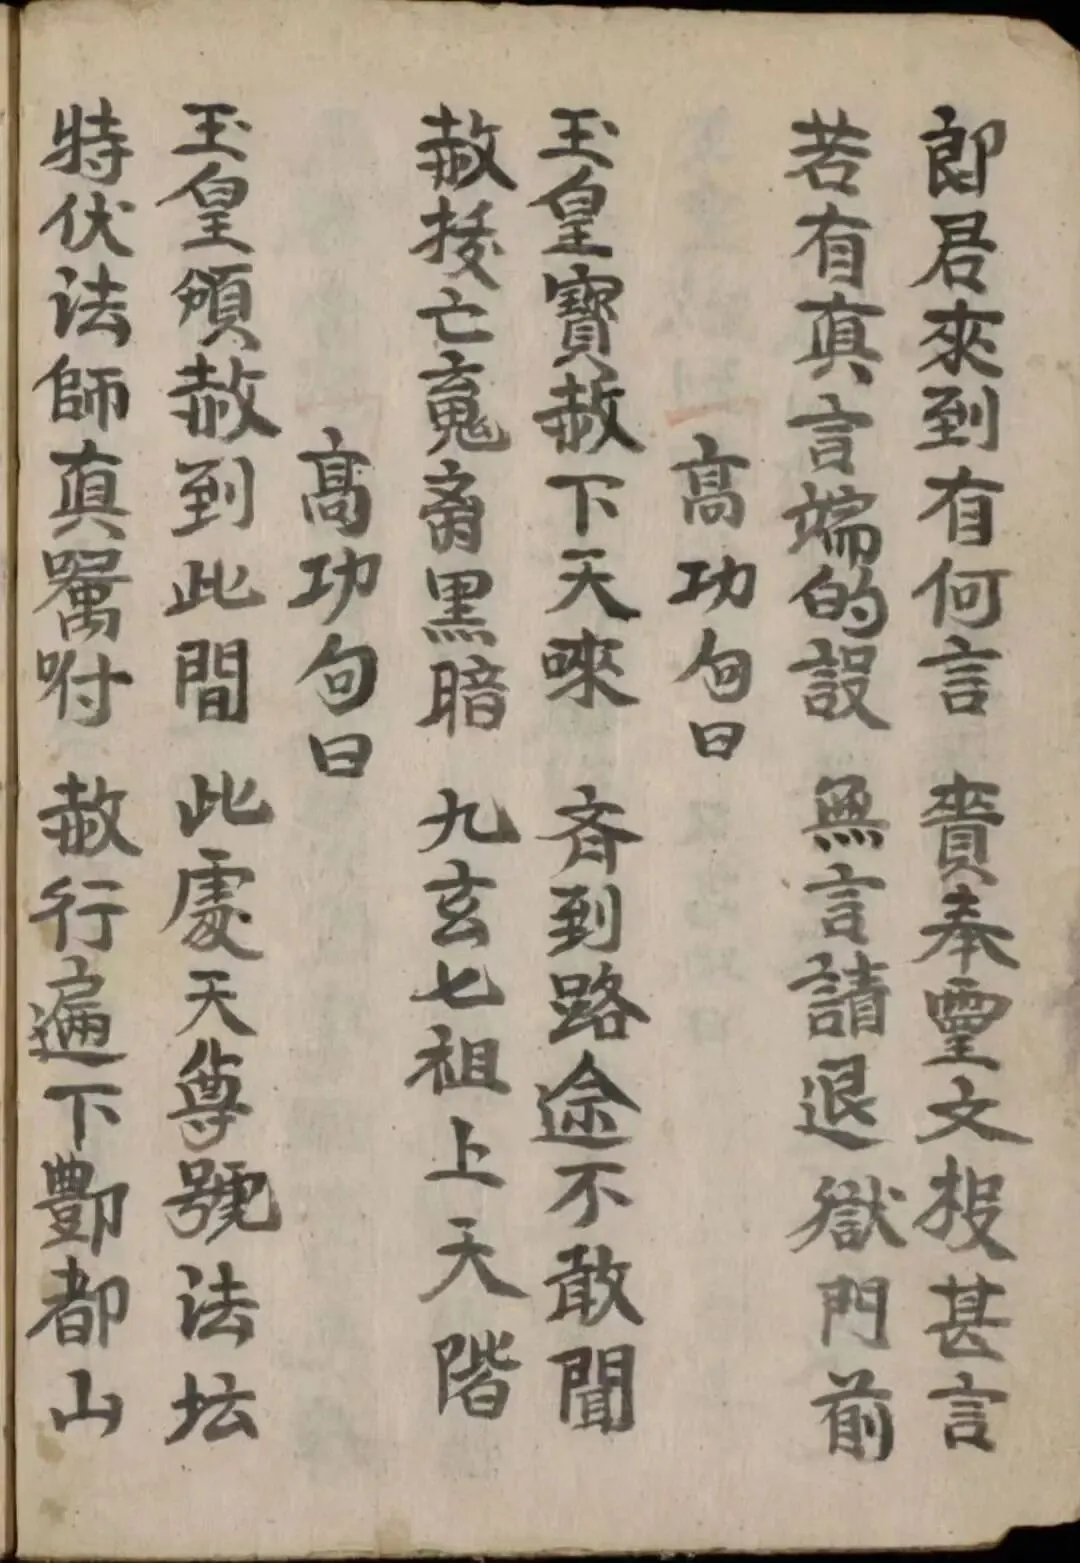 郎君來到有何言　賷奉靈文投甚言
若有真言端的設　無言請退獄門前
高功句曰
玉皇寶赦下天唻　齐到路途不敢聞
赦拔亡寃离黑暗　九玄七祖上天階
高功句曰
玉皇頒赦到此間　此處天尊號法坛
特伏法師真囑咐　赦行遍下酆都山